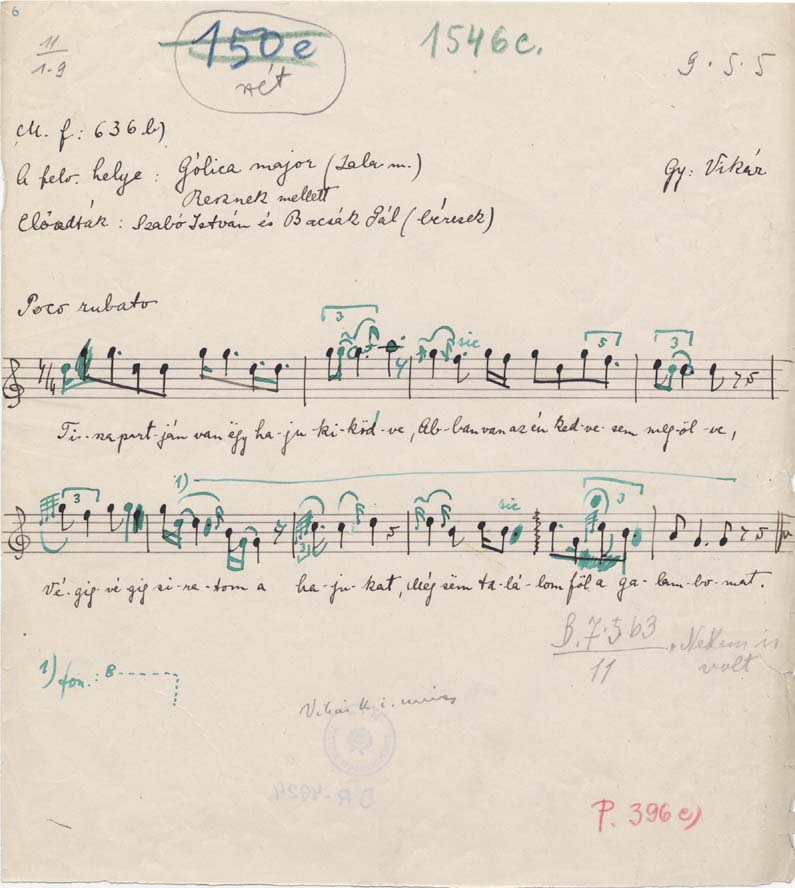 6
11
1-9
150e
1546c.
9. 5. 5
M. f: 636b)
A felv. helye: Gólica major (Zala m.)
Gy: Vikár
Resznek mellett
Előadták: Szabó István és Bacsák Pál (béresek)
Poco rubato
3
sic
5
3
Ti-sza part-ján van ëgy ha-ju-ki-köd-ve, Ab-ban van az én ked-ve-sem meg-öl-ve,
3
1)
sic
3
3
Vé-gig-vé-gig si-ra-tom a ha-ju-kat, Még sëm ta-lá-lom föl a ga-lam-bo-mat.
B. 7. 5. b3
11
Nekem is
volt
1) fon.: 8
P. 396e)